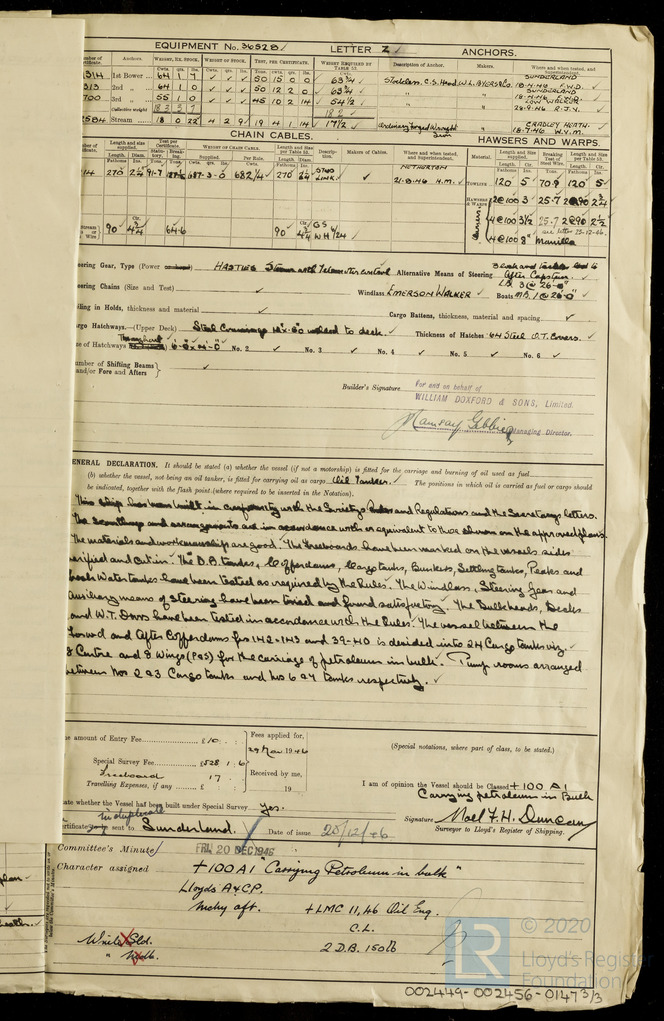 EQUIPMENT No. 36528 LETTER Z ANCHORS.
Anchors. WEIGHT, EX. STOCK. WEIGHT OF STOCK. TEST, PER CERTIFICATE. WEIGHT REQUIRED BY TABLE 53. Description of Anchor. Makers. Where and when tested, and Superintendent.
Cwts. qrs. lbs. Cwts. qrs. lbs. Tons. cwts. qrs. lbs. Cwts.
1314 1st Bower ... 64 1 7 50 15 0 0 63¾ Stockless, C.S. Head W.L. BYERS & Co. SUNDERLAND
1313 2nd „ ... 64 1 0 50 12 2 0 63¾ 18-4-46 F.W.D. SUNDERLAND
3rd „ ... 55 1 0 45 10 2 14 54½
Collective weight
2584 Stream ... 18 0 22 4 2 9 19 4 1 14 17½ CRADLEY HEATH. 18-7-46 W.V.M.
CHAIN CABLES. HAWSERS AND WARPS.
Length and size supplied. Test per Certificate. WEIGHT OF CHAIN CABLE. Length and size per Table 53. Description. Makers of Cables. Where and when tested, and Superintendent. Material. Length and Size supplied. Breaking Test of Steel Wire. Length and Size per Table 53.
Length. Diam. Supplied. Per Rule. Length. Diam.
270 2¼ 91·7 687-3-0 682¼ 270 2¼ STUD LINK. NETHERTON 21-8-46 H.M. TOWLINE 120 5 70·9 120 5
HAWSERS & WARPS 2@100 3 25·7 2@90 2¾
90 4¾ 64·6 90 4¾ G S W H 6/24 4@100 3½ 25·7 2@90 2½
4@100 8" Manilla
Steering Gear, Type (Power HASTIES Steam with Telemotor control Alternative Means of Steering
After Capstan.
Steering Chains (Size and Test) Windlass EMERSON WALKER Boats
Ceiling in Holds, thickness and material Cargo Battens, thickness, material and spacing.
Cargo Hatchways.—(Upper Deck) Steel Coamings welded to deck. Thickness of Hatches Steel O.T. Covers.
Size of Hatchways No. 2 No. 3 No. 4 No. 5 No. 6
Number of Shifting Beams and/or Fore and Afters
Builder's Signature For and on behalf of
WILLIAM DOXFORD & SONS, Limited.
Ramsay Gebbie Managing Director.
GENERAL DECLARATION. It should be stated (a) whether the vessel (if not a motorship) is fitted for the carriage and burning of oil used as fuel
(b) whether the vessel, not being an oil tanker, is fitted for carrying oil as cargo Oil Tanker. The positions in which oil is carried as fuel or cargo should
be indicated, together with the flash point (where required to be inserted in the Notation).
This ship has been built in conformity with the Society's Rules and Regulations and the Secretary's letters.
The scantlings and arrangements are in accordance with or equivalent to those shown on the approved plans.
The materials and workmanship are good. The Freeboards have been marked on the vessels sides
verified and cut in. The D.B. tanks, Cofferdams, Cargo tanks, Bunkers, Settling tanks, Peaks and
Fresh Water tanks have been tested as required by the Rules. The Windlass, Steering Gear and
Auxiliary means of Steering have been tried and found satisfactory. The Bulkheads, Decks
and W.T. Doors have been tested in accordance with the Rules. The vessel between the
Forward and After Cofferdams frs 142-143 and 39-40 is divided into 24 Cargo tanks viz.
8 Centre and 8 Wings (P&S) for the carriage of petroleum in bulk. Pump rooms arranged
between Nos 2 & 3 Cargo tanks and Nos 6 & 7 tanks respectively.
The amount of Entry Fee £ 10 : : Fees applied for,
29 Nov. 1946
Special Survey Fee £528 : 1 : 6
Freeboard 17 Received by me,
Travelling Expenses, if any £ : : 19
(Special notations, where part of class, to be stated.)
I am of opinion the Vessel should be Classed +100 A1
Carrying petroleum in Bulk
State whether the Vessel has been built under Special Survey Yes.
in duplicate
Certificate sent to Sunderland. Date of issue 20/12/46
Signature Noel F.H. Duncan
Surveyor to Lloyd's Register of Shipping.
Committee's Minute FRI. 20 DEC 1946
Character assigned +100A1 "Carrying Petroleum in bulk"
Lloyds A & CP.
Mchy aft. +LMC 11,46 Oil Eng.
C.L.
2 D.B. 150 lb
Write Sld.
LR © 2020
Lloyd's Register
Foundation
002449-002456-0147 3/3